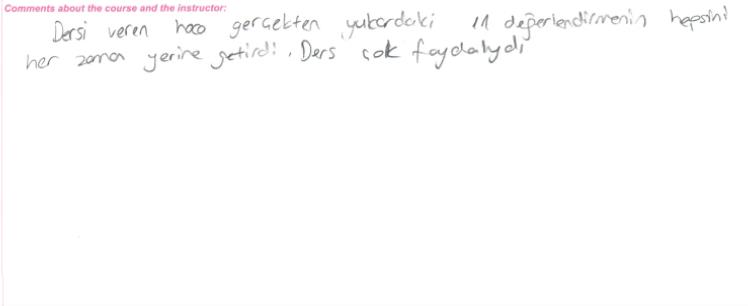 Comments about the course and the instructor:
Dersi veren hoca gerçekten yukardaki 11 değerlendirmenin hepsini
her zaman yerine getirdi. Ders çok faydalıydı